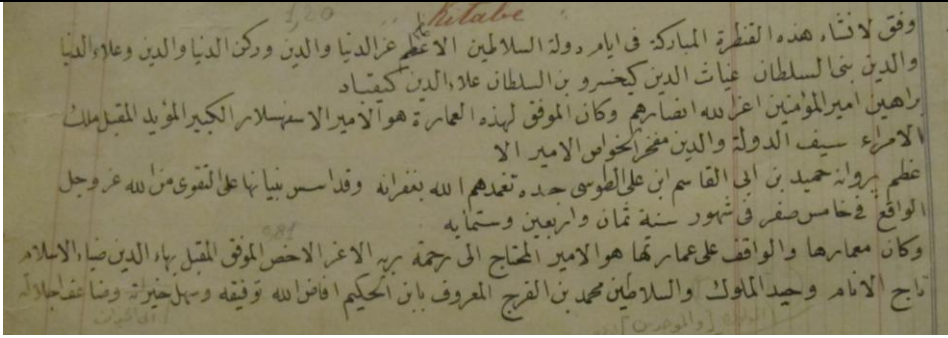 1,20
Kitabe
وفق لانشاء هذه القنطرة المباركة فى ايام دولة السلاطين الاعظم عز الدنيا والدين وركن الدنيا والدين وعلاء الدنيا
والدين بنى السلطان غياث الدين كيخسرو بن السلطان علاء الدين كيقباد
براهين امير المؤمنين اعز الله انصارهم وكان الموفق لهذه العمارة هو الامير الاسفهسلار الكبير المؤيد المقبل ملك
الامراء سيف الدولة والدين مفخر الخواص الامير الا
عظم پروانه حميد بن ابى القاسم ابن على الطوسى جده تغمدهم الله بغفرانه وقد اسس بنيانها على التقوى من الله عز وجل
الواقع فى خامس صفر فى شهور سنة ثمان واربعين وستمايه
0,81
وكان معمارها والواقف على عمارتها هو الامير المحتاج الى رحمة ربه الاعز الاخص الموفق المقبل بهاء الدين ضياء الاسلام
تاج الانام وحيد الملوك والسلاطين محمد بن الفرج المعروف بابن الحكيم افاض الله توفيقه وسهل خيراته وضاعف اجلاله
والموحدين